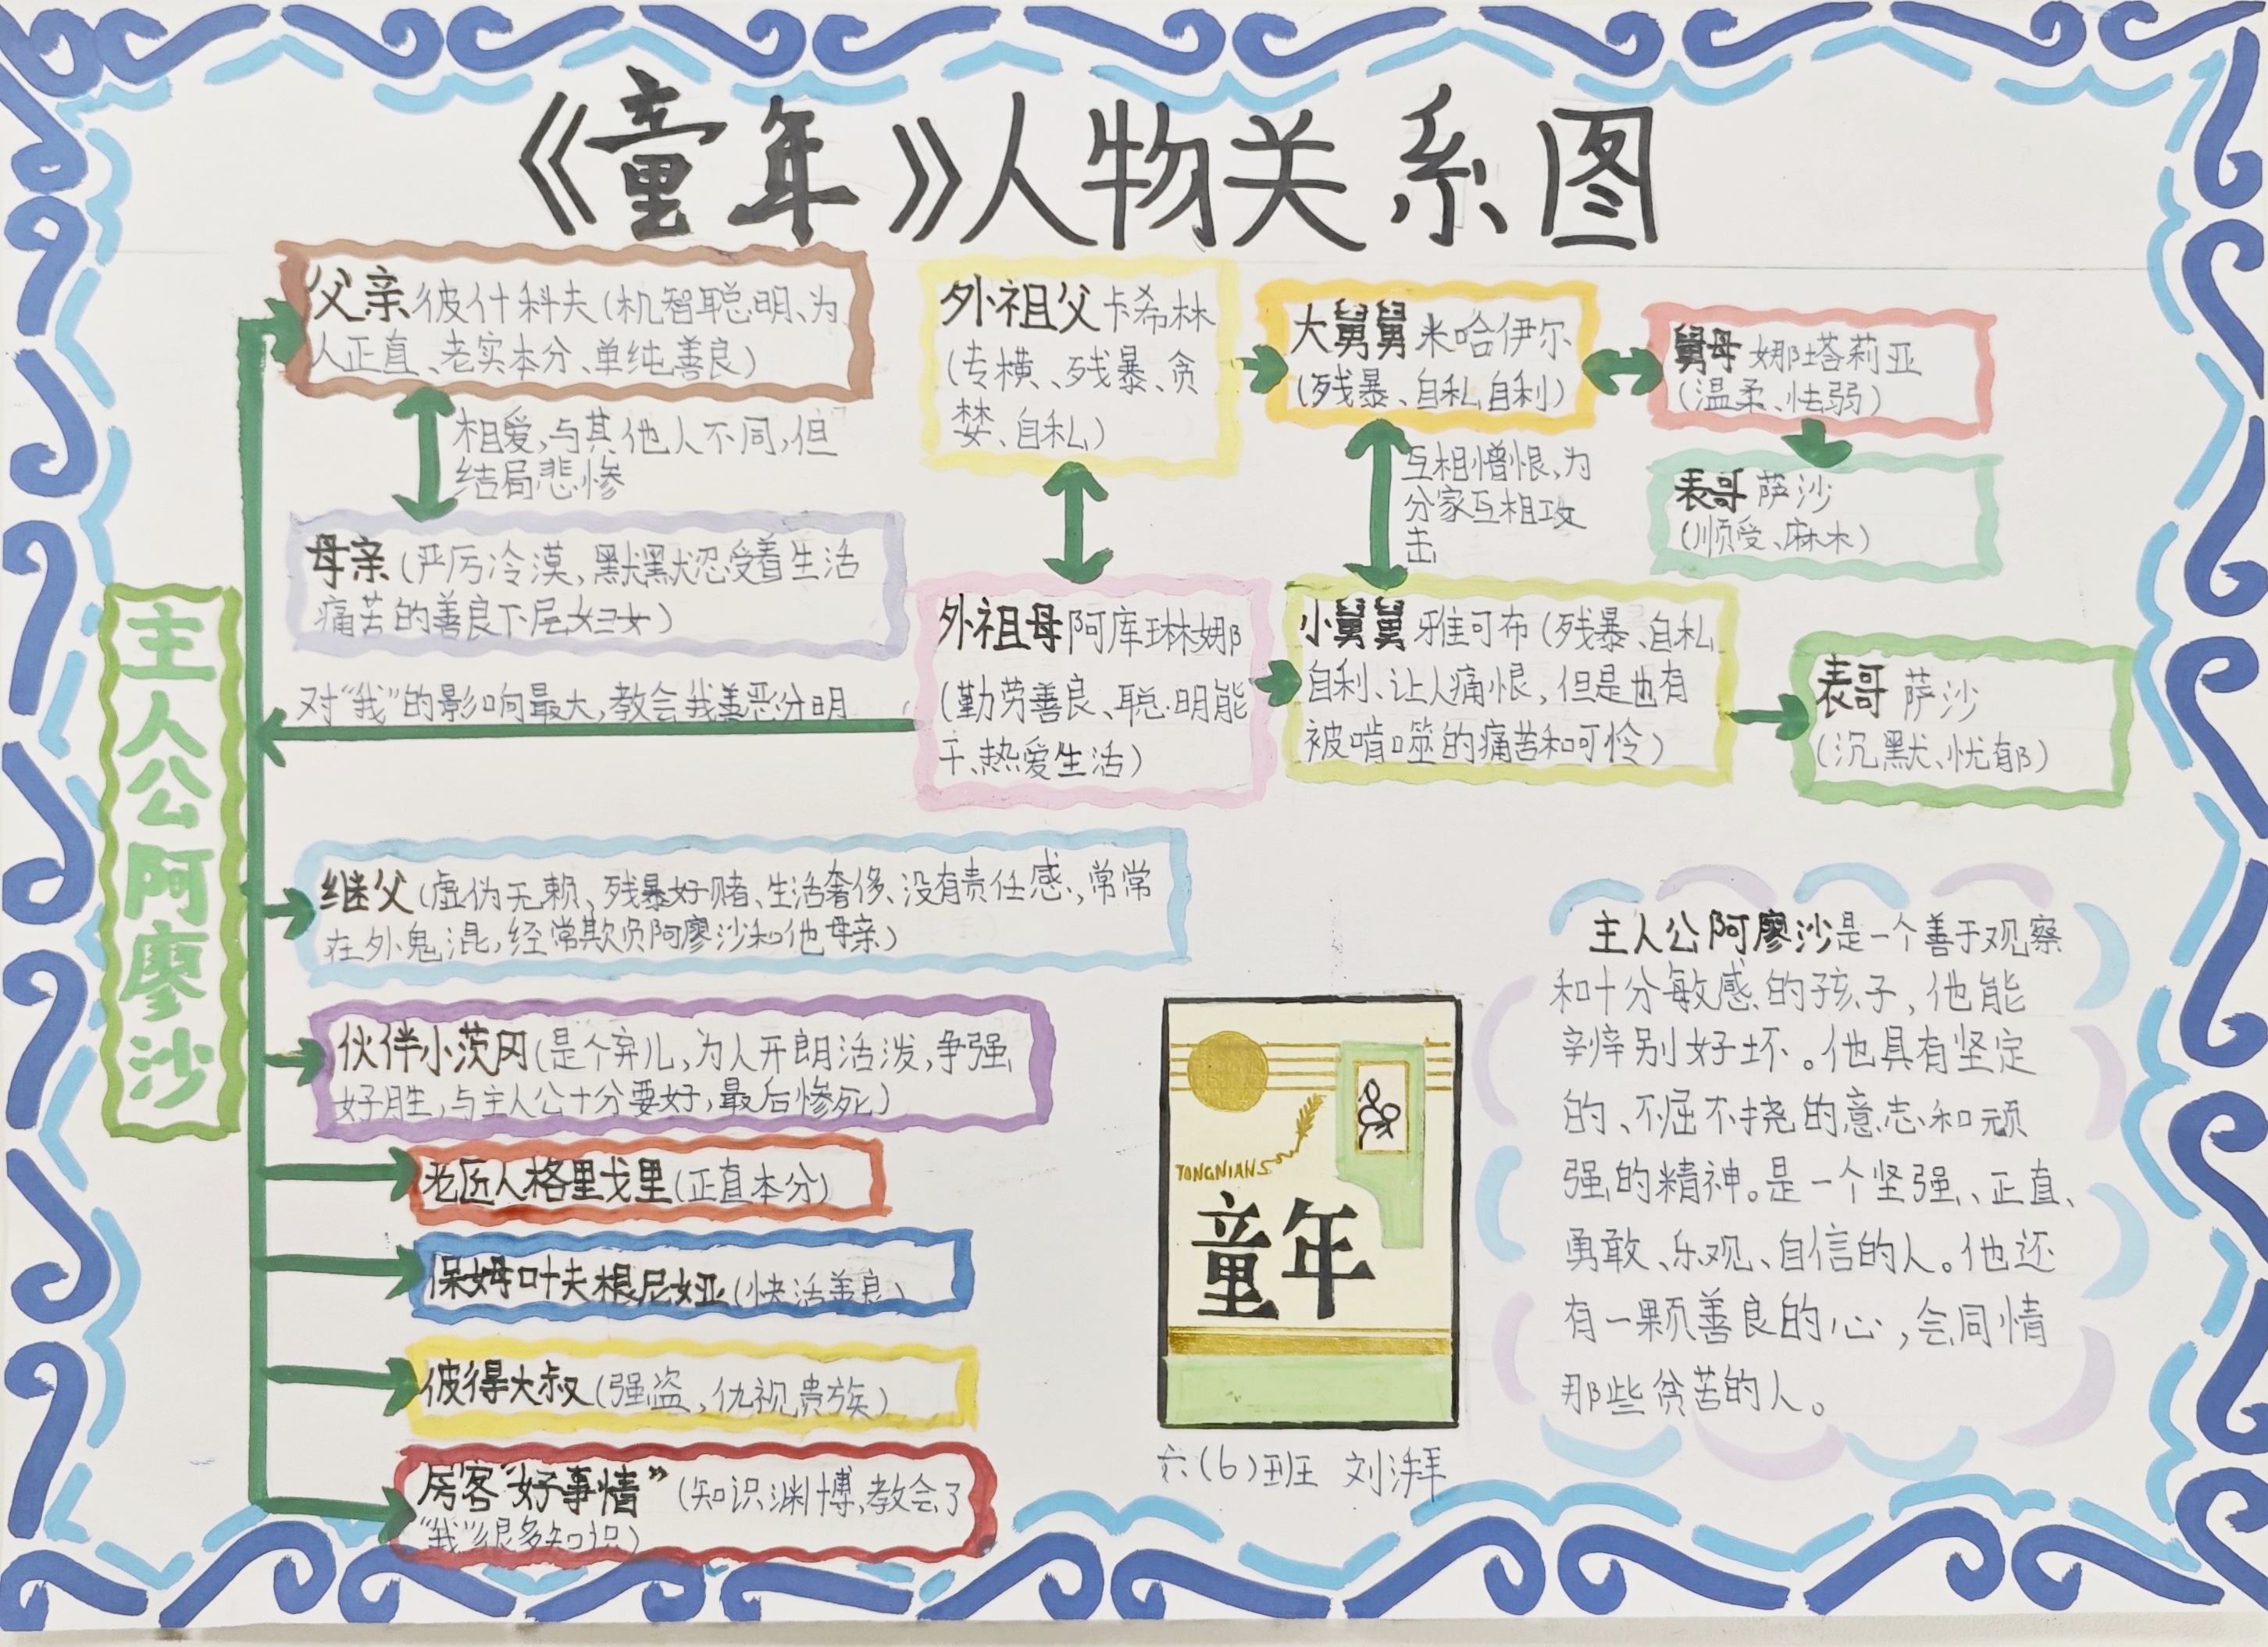 《童年》人物关系图
父亲彼什科夫(机智聪明、为
人正直、老实本分、单纯善良)
相爱,与其他人不同,但
结局悲惨
母亲(严厉冷漠,默默忍受着生活
痛苦的善良下层妇女)
对“我”的影响最大,教会我善恶分明
外祖父卡希林
(专横、残暴、贪
婪、自私)
外祖母阿库琳娜
(勤劳善良、聪明能
干、热爱生活)
大舅舅米哈伊尔
(残暴、自私自利)
互相憎恨,为
分家互相攻
击
小舅舅雅可布(残暴、自私
自利、让人痛恨,但是也有
被啃噬的痛苦和可怜)
舅母娜塔莉亚
(温柔、怯弱)
表哥萨沙
(顺受、麻木)
表哥萨沙
(沉默、忧郁)
主人公阿廖沙
继父(虚伪无赖、残暴好赌、生活奢侈、没有责任感,常常
在外鬼混,经常欺负阿廖沙和他母亲)
伙伴小茨冈(是个弃儿,为人开朗活泼,争强
好胜,与主人公十分要好,最后惨死)
老匠人格里戈里(正直本分)
保姆叶夫根尼娅(快活善良)
彼得大叔(强盗,仇视贵族)
房客“好事情”(知识渊博,教会了
“我”很多知识)
TONGNIANS
童年
六(6)班 刘湃
主人公阿廖沙是一个善于观察
和十分敏感的孩子,他能
辨别好坏。他具有坚定
的、不屈不挠的意志和顽
强的精神。是一个坚强、正直、
勇敢、乐观、自信的人。他还
有一颗善良的心,会同情
那些贫苦的人。